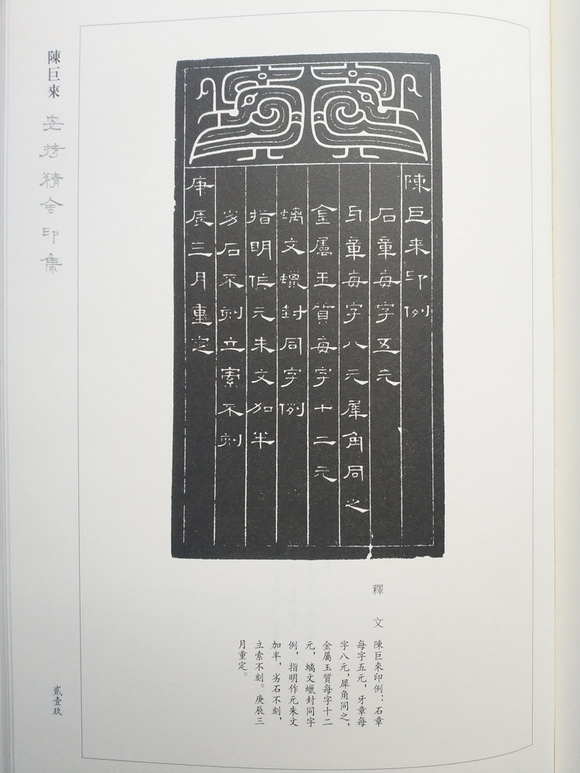 陳巨來印例
石章每字五元
牙章每字八元犀角同之
金屬玉質每字十二元
螭文蠟封同字例
指明作元朱文加半
劣石不刻立索不刻
庚辰三月重定
釋文
陳巨來印例：石章
每字五元，牙章每
字八元，犀角同之，
金屬玉質每字十二
元，螭文蠟封同字
例，指明作元朱文
加半，劣石不刻，
立索不刻。庚辰三
月重定。
陳巨來 安持精舍印集
貳壹玖